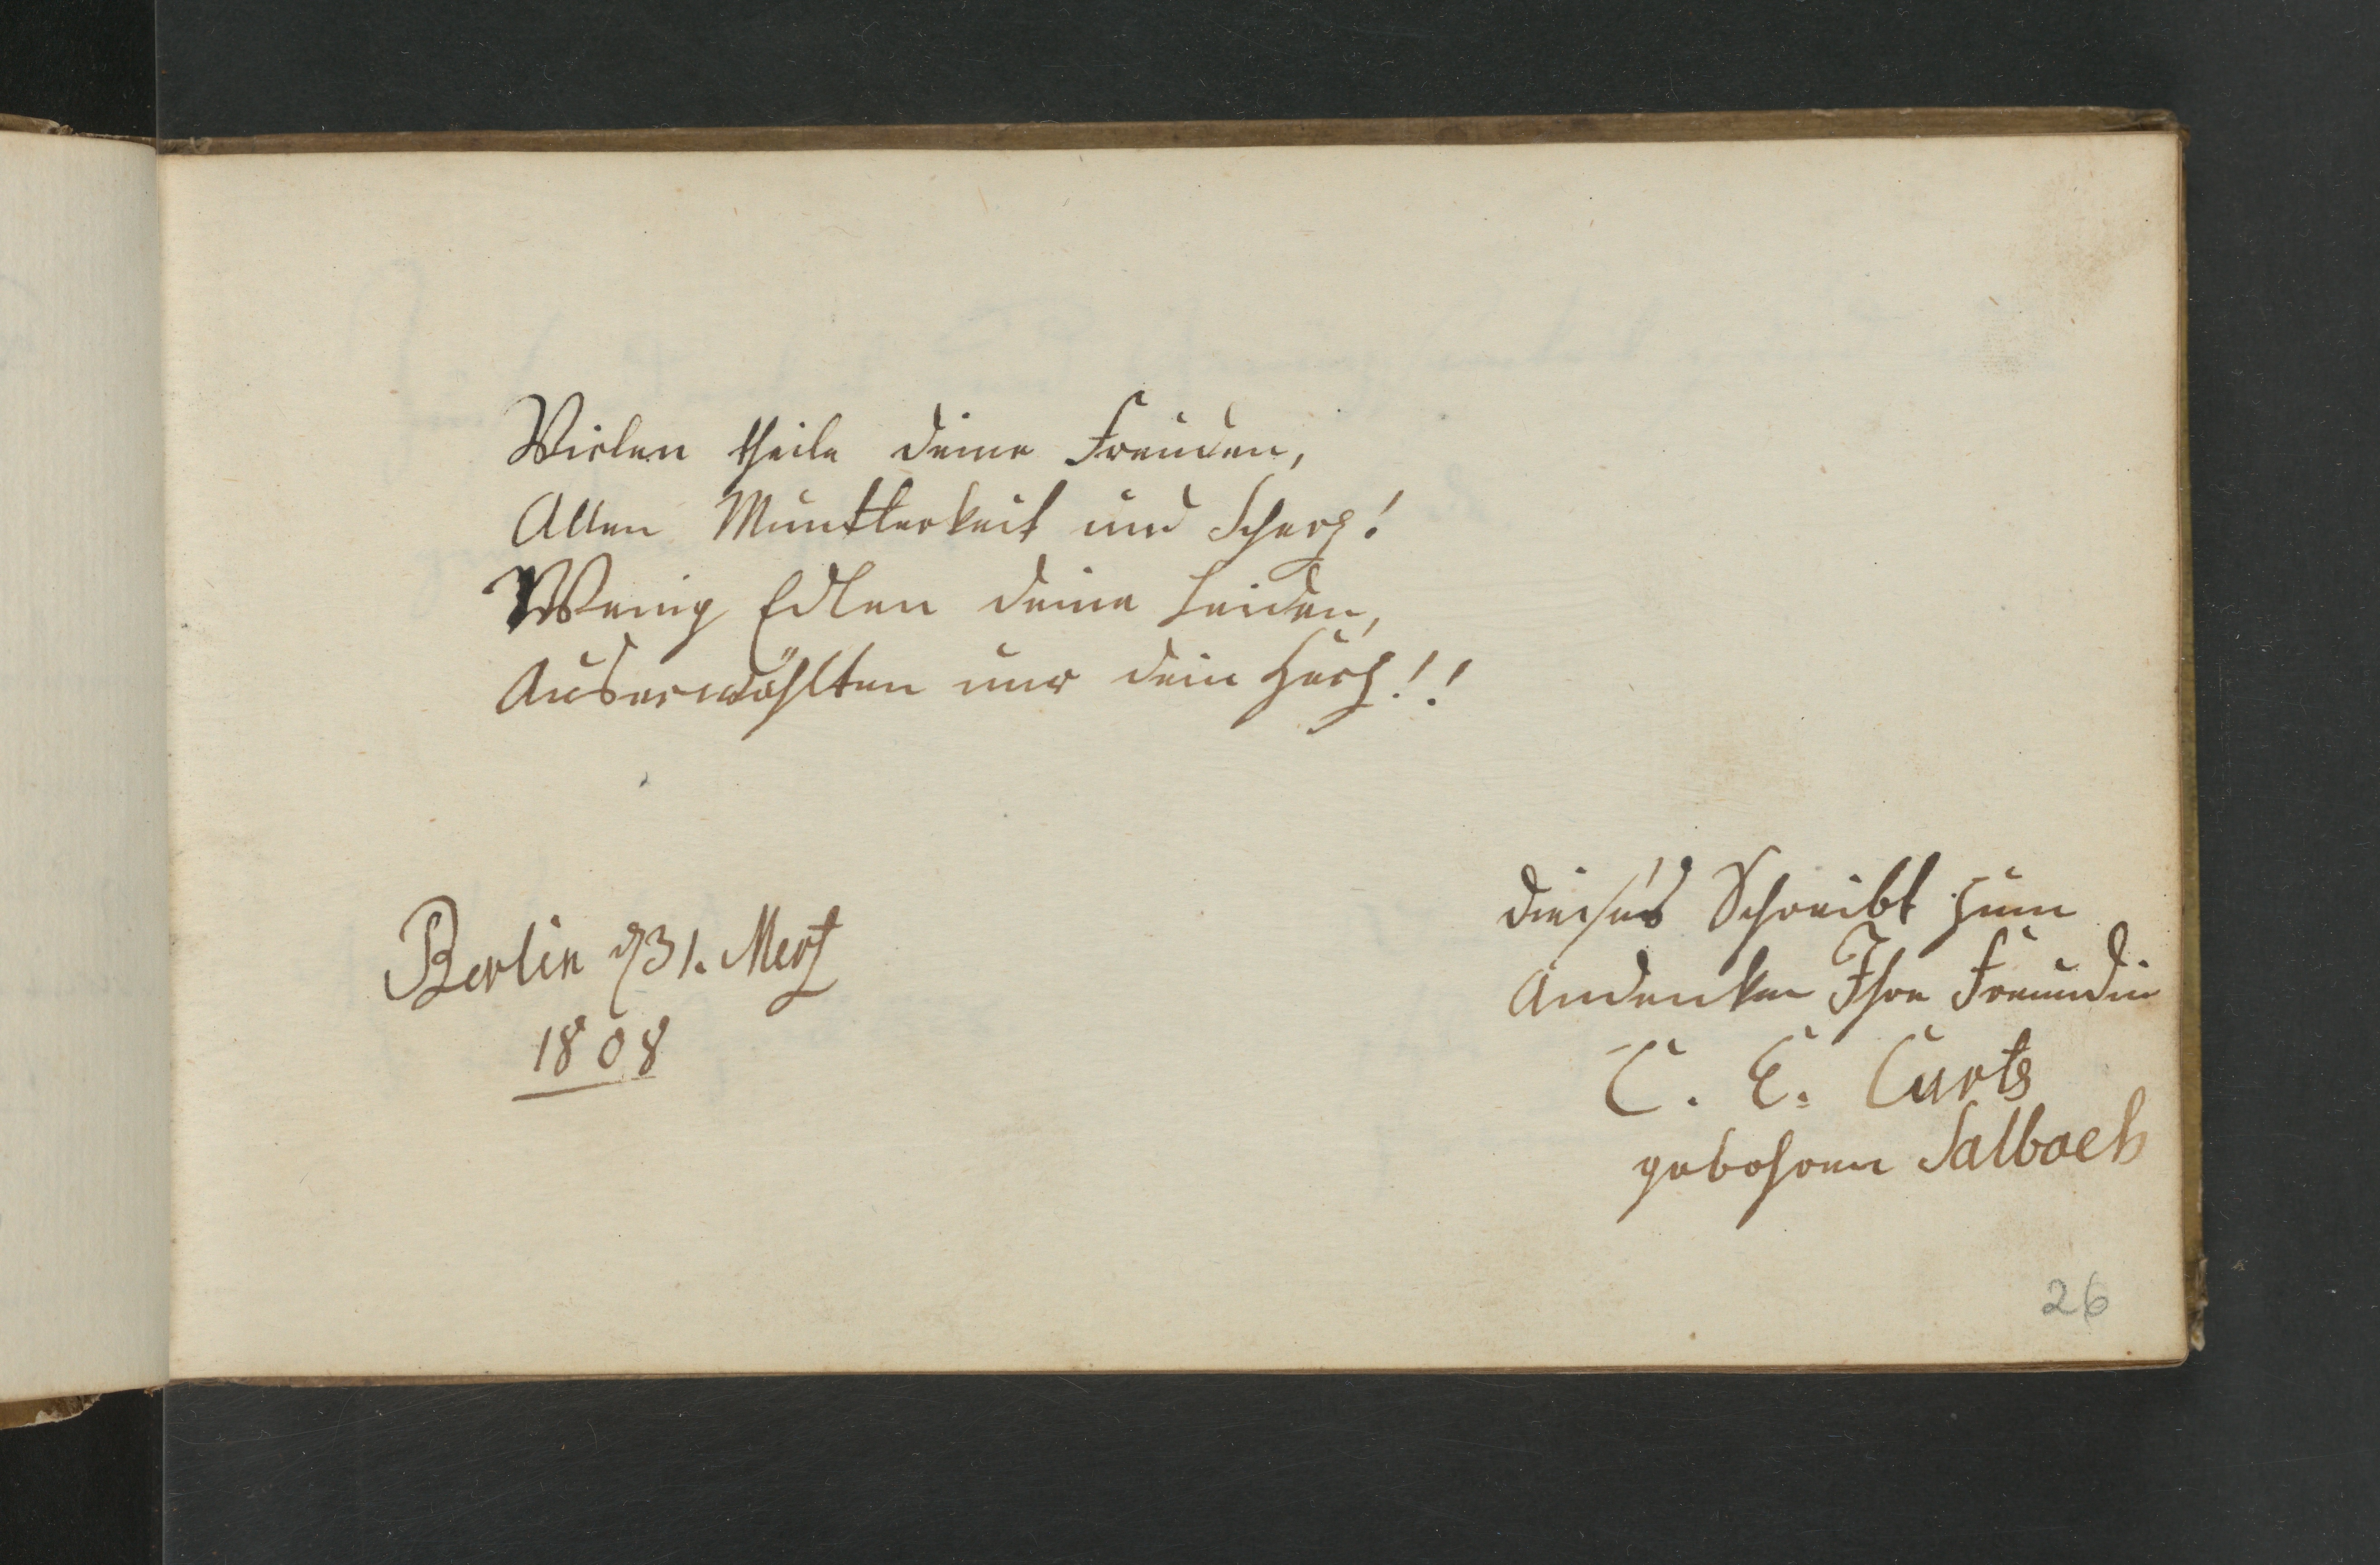 Vielen theile deine Freuden,
Allen Muntterkeit und Scherz!
Wenig Edlen deine Leiden,
Auserwählten nur dein Herz!!
Berlin d 31. Mertz
1808
dieses Schreibt zum
Andenken Ihre Freundin
C. E. Curts
gebohren Salbach
26